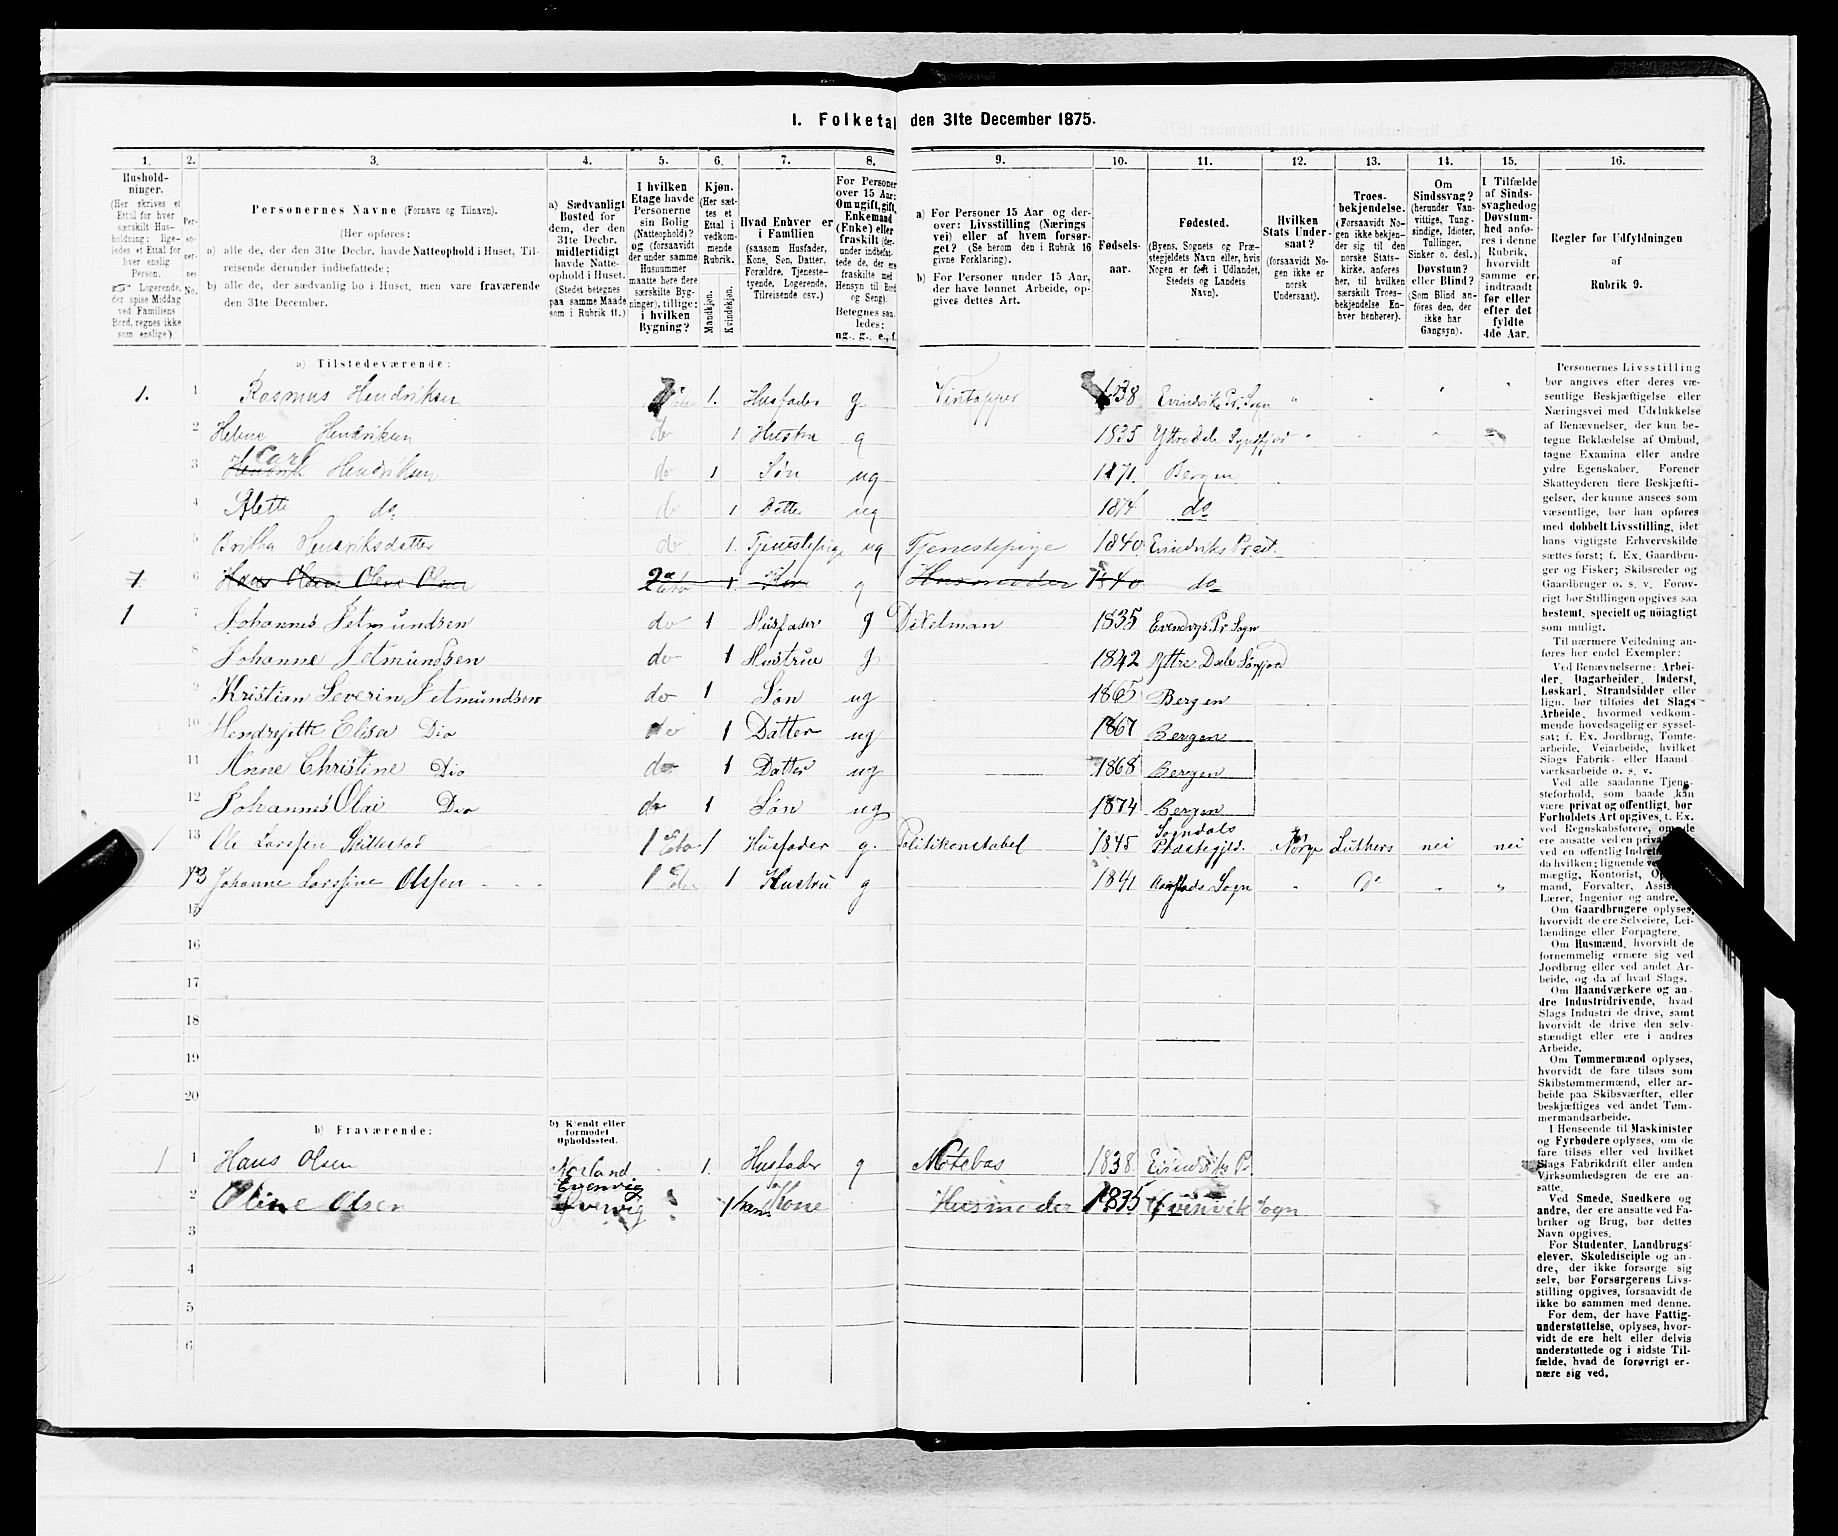 1. Folketal den 31te December 1875.
1. 2. 3. 4. 5. 6. 7. 8. 9. 10. 11. 12. 13. 14. 15. 16.
Hushold-
ninger.
(Her skrives et
Ettal for hver
særskilt Hus-
holdning; lige-
ledes et Ettal for
hver enslig
Person.
Logerende,
der spise Middag
ved Familiens
Bord, regnes ikke
som enslige).
Per-
so-
ner-
nes
No.
Personernes Navne (Fornavn og Tilnavn).
(Her opføres:
a) alle de, der den 31te Decbr. havde Natteophold i Huset, Til-
reisende derunder indbefattede;
b) alle de, der sædvanlig bo i Huset, men vare fraværende
den 31te December.
a) Sædvanligt
Bosted for
dem, der den
31te Decbr.
midlertidigt
havde Natte-
ophold i Huset.
(Stedet betegnes
paa samme Maade
som i Rubrik 11.)
I hvilken
Etage havde
Personerne
sin Bolig
(Natteophold)?
og (forsaavidt
der under samme
Husnummer
maatte høre flere
særskilte Byg-
ninger), tillige:
i hvilken
Bygning?
Kjøn.
(Her sæt-
tes et
Ettal i
vedkom-
mende
Rubrik.
Mandkjøn.
Kvindekjøn.
Hvad Enhver er
i Familien
(saasom Husfader,
Kone, Søn, Datter,
Forældre, Tjeneste-
tyende, Logerende,
Tilreisende osv.)
For Personer
over 15 Aar:
Om ugift, gift,
Enkemand
(Enke) eller
fraskilt (der-
under indbefat-
tede de, der ere
fraskilte med
Hensyn til Bord
og Seng).
Betegnes saa-
ledes:
ug., g., e., f.
a) For Personer 15 Aar og der-
over: Livsstilling (Nærings-
vei) eller af hvem forsør-
get? (Se herom den i Rubrik 16
givne Forklaring).
b) For Personer under 15 Aar,
der have lønnet Arbeide, op-
gives dettes Art.
Fødsels-
aar.
Fødested.
(Byens, Sognets og Præ-
stegjeldets Navn eller, hvis
Nogen er født i Udlandet,
Stedets og Landets
Navn).
Hvilken
Stats Under-
saat?
(forsaavidt No-
gen ikke er
norsk
Undersaat).
Troes-
bekjendelse.
(Forsaavidt No-
gen ikke bekjen-
der sig til den
norske Stats-
kirke, anføres
her, til hvilken
særskilt Troes-
bekjendelse En-
hver henhører).
Om
Sindssvag?
(herunder Van-
vittige, Tung-
sindige, Idioter,
Tullinger,
Sinker o. desl.)
Døvstum?
eller Blind?
(Som Blind an-
føres den, der
ikke har
Gangsyn).
I Tilfælde
af Sinds-
svaghed og
Døvstum-
hed anfø-
res i denne
Rubrik,
hvorvidt
samme er
indtraadt
før eller
efter det
fyldte
4de Aar.
Regler for Udfyldningen
af
Rubrik 9.
a) Tilstedeværende:
1. 1 Rasmus Hendriksen 1. Husfader g. Vintapper 1838 Evindviks Pr. Sogn "
2 Helene Hendriksen do 1 Hustru g 1835 Yttre Dale Syndfjord "
3 Carl Hendriksen do 1 Søn ug 1871. Bergen
4 Alette do do 1 Datter ug 1874 do
5 Britha Hendriksdatter do 1. Tjenestepige ug Tjenestepige 1840 Evindviks Præst.
1 6 Hans Olsen Olene Olsen 2den Etro 1. g Husmoder 1840 do
1 7 Johannes Jetmundsen do 1 Husfader g Ditelman 1835 Evendvigs Pr Sogn
8 Johanne Jetmundsen do 1 Hustrue g 1842 Yttre Dale
9 Kristian Severin Jetmundsen do 1 Søn ug 1865 Bergen
10 Elisa Dio do 1 Datter ug 1867 Bergen
11 Anne Christine Dio do 1 Datter ug 1868 Bergen
12 Johannes Olai Dio do 1 Søn ug 1874 Bergen
1 13 Ole Larssen 1 Eta 1 Husfader g. Politikonstabel 1845 Sogndals Præstegjeld. Norge Luthers nei nei
Johanne Larssine Olssen 1 Eta 1 Hustru g 1841 Sogn " Do " "
15
16
17
18
19
20
b) Fraværende:
b) Kjendt eller
formodet
Opholdssted.
1 1 Hans Olsen Norland 1. Husfader g Notebas 1838 Evindviks Pr.
2 Oline Olsen Evenvig 1 hans Kone Husmoder 1835 Evinvik Sogn
3
4
5
6
Personernes Livsstilling
bør angives efter deres væ-
sentlige Beskjæftigelse eller
Næringsvei med Udelukkelse
af Benævnelser, der kun be-
tegne Beklædelse af Ombud,
tagne Examina eller andre
ydre Egenskaber. Forener
Skatteyderen flere Beskjæfti-
gelser, der kunne ansees som
væsentlige, bør han opføres
med dobbelt Livsstilling, idet
hans vigtigste Erhvervskilde
sættes først; f. Ex. Gaardbru-
ger og Fisker; Skibsreder og
Gaardbruger o. s. v. Forøv-
rigt bør Stillingen opgives saa
bestemt, specielt og nöiagtigt
som muligt.
Til nærmere Veiledning an-
føres her endel Exempler:
Ved Benævnelserne: Arbei-
der, Dagarbeider, Inderst,
Løskarl, Strandsidder eller
lign. bør tilføies det Slags
Arbeide, hvormed vedkom-
mende hovedsagelig er syssel-
sat; f. Ex. Jordbrug, Tomte-
arbeide, Veiarbeide, hvilket
Slags Fabrik- eller Haand-
værksarbeide o. s. v.
Ved alle saadanne Tjeng-
steforhold, som baade kan
være privat og offentligt, bør
Forholdets Art opgives, t. Ex.
ved Regnskabsførere, om de
ere ansatte ved en
ved en offentlig
da hvilken; lignende
mægtig, Kontorist,
mand, Forvalter,
Lærer, Ingeniør og andre.
Om Gaardbrugere oplyses,
hvorvidt de ere Selveiere, Lei-
lændinge eller Forpagtere.
Om Husmænd, hvorvidt de
fornemmelig ernære sig ved
Jordbrug eller ved andet Ar-
beide, og da af hvad Slags.
Om Haandværkere og an-
dre Industridrivende, hvad
Slags Industri de drive, samt
hvorvidt de drive den selv-
stændigt eller ere i andres
Arbeide.
Om Tømmermænd oplyses,
hvorvidt de fare tilsøs som
Skibstømmermænd, eller ar-
beide paa Skibsværfter, eller
beskjæftiges ved andet Tøm-
mermandsarbeide.
I Henseende til Maskinister
og Fyrbødere oplyses, om de
fare tilsøs eller ved hvilket
Slags Fabrikdrift eller anden
Virksomhedsgren de ere an-
satte.
Ved Smede, Snedkere og
andre, der ere ansatte ved Fa-
briker og Brug, bør dettes
Navn opgives.
For Studenter, Landbrugs-
elever, Skoledisciple og an-
dre, der ikke forsørge sig
selv, bør Forsørgerens Livs-
stilling opgives, forsaavidt de
ikke bo sammen med denne.
For dem, der have Fattig-
understøttelse, oplyses, hvor-
vidt de ere helt eller delvis
understøttede og i sidste Til-
fælde, hvad de forøvrigt er-
nære sig ved.